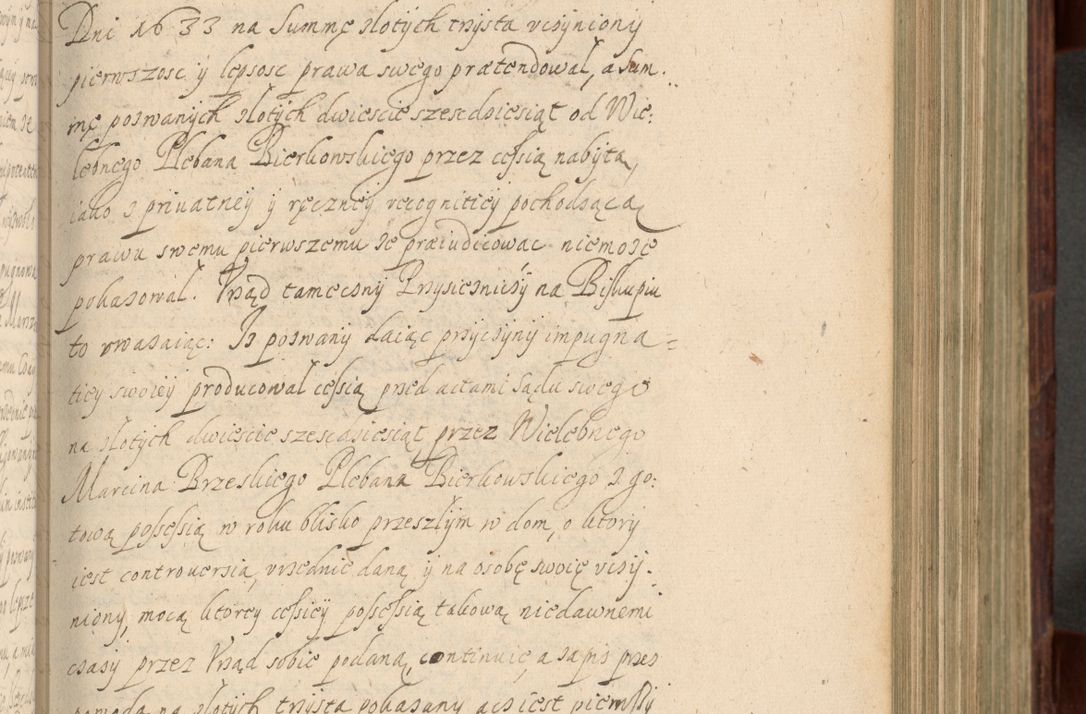 Dni 1633 na Summę złotych trzysta vczyniony
pierwszosc y lepsosc prawa swego prætendował, a Sum.
mę pozwanych złotych dwiescie szescdziesiąt od Wie:
lebnego Plebana Bierkowskiego przez cessią nabytą,
iako z priuatney y ręczney recognitiey pochodzącą
prawu swemu pierwszemu ze præiudicowac niemoze
pokazował. Vrząd tameczny Przysiezniczy na Biskupiu
to vwazaiąc: Iz pozwany daiąc przyczyny impugna=
tiey swoiey producował cessią przed actami Sądu swego
na złotych dwiescie szescdziesiąt przez Wielebnego
Marcina Brzeskiego Plebana Bierkowskiego z go:
tową possessią w roku blisko przeszłym w dom, o ktory
iest controuersia, vrzednie daną y na osobę swoię vczy.
niony, mocą ktorey cessiey possessią takową niedawnemi
czasy przez Vrząd sobie podaną continuie, a zapis przez
na złotych trzysta pokazany acz iest pierwszy